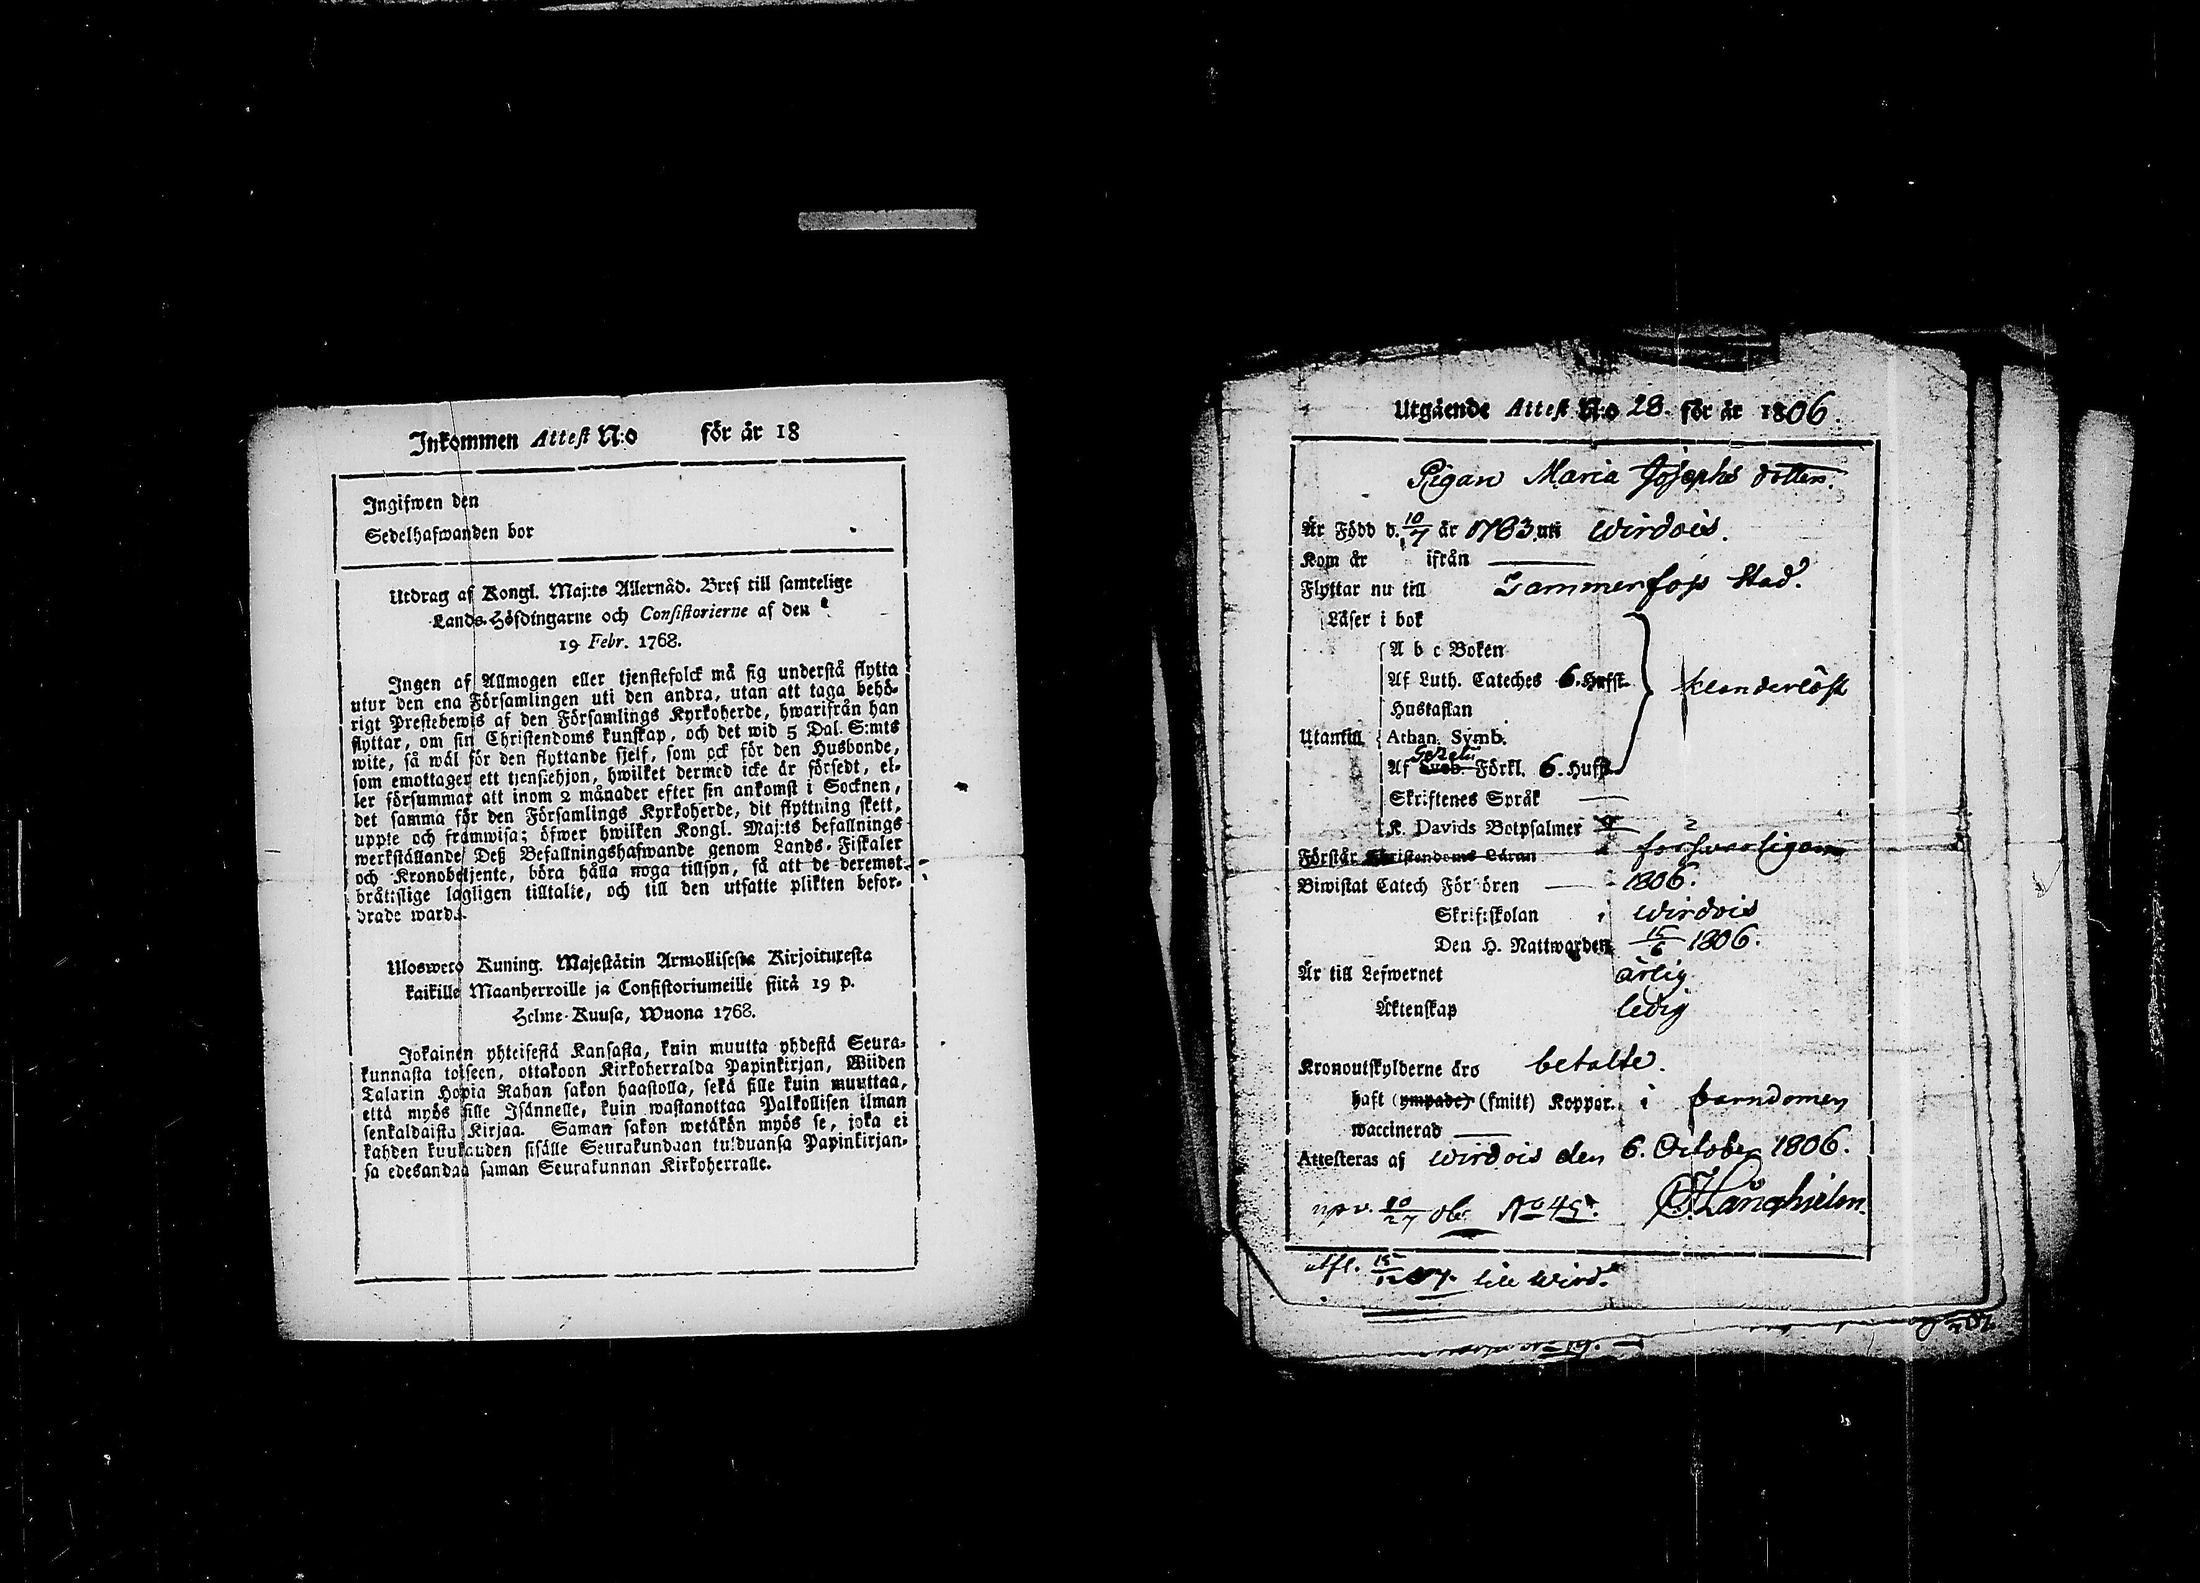 Inkommen Attest N:o för år 18
Ingifwen den
Sedelhafwanden bor
Utdrag af Kongl. Maj:ts Allernåd. Bref till samtelige
Lands-Höfdingarne och Consistorierne af den
19 Febr. 1768.
Ingen af Allmogen eller tjenstefolck må sig understå flytta
utur den ena Församlingen uti den andra, utan att taga behö-
rigt Prestebewis af den Församlings Kyrkoherde, hwarifrån han
flyttar, om sin Christendoms kunskap, och det wid 5 Dal. S:mts
wite, så wäl för den flyttande sjelf, som ock för den Husbonde,
som emottager ett tjenstehjon, hwilket dermed icke är försedt, el-
ler försummar att inom 2 månader efter sin ankomst i Socknen,
det samma för den Församlings Kyrkoherde, dit flyttning skett,
uppte och framwisa; öfwer hwilken Kongl. Maj:ts befallnings
werkställande Deß Befallningshafwande genom Lands-Fiskaler
och Kronobetjente, böra hålla noga tillsyn, så att de deremot
bråtislige lagligen tilltalte, och till den utsatte plikten befor-
drade warda.
Ulosweto Kuning. Majestätin Armollisesta Kirjoituxesta
kaikille Maanherroille ja Consistoriumeille siitä 19 p.
Helme-Kuusa, Wuona 1768.
Jokainen yhteisestä Kansasta, kuin muutta yhdestä Seura-
kunnasta toiseen, ottakoon Kirkoherralda Papinkirjan, Wiiden
Talarin Hopia Rahan sakon haastolla, sekä sille kuin muuttaa,
että myös sille Isännelle, kuin wastanottaa Palkollisen ilman
senkaldaista Kirjaa. Saman sakon wetäkön myös se, joka ei
kahden kuukauden sisälle Seurakundaan tulduansa Papinkirjan-
sa edesandaa saman Seurakunnan Kirkoherralle.
Utgående Attest N:o 28. för år 1806.
Pigan Maria Josephs dotter.
Är Född d. 10/7 år 1783 uti Wirdois.
Kom år ifrån
Flyttar nu till Tammerfors stad.
Läser i bok
A b c Boken
Af Luth. Cateches 6. Hufst.
Hustaflan
klanderlöst
Utantill Athan. Symb.
Af Förkl. 6. Hufst.
Skriftenes Språk
K. Davids Botpsalmer 2
Förstår Christendoms Läran försvarligen
Biwistat Catech Förhören 1806.
Skriftskolan Wirdois
Den H. Nattwarden 15/6 1806.
Är till Lefwernet ärlig
Äktenskap ledig
Kronoutskylderne äro betalte.
haft (ympade) (smitt) Koppor. i barndomen
waccinerad
Attesteras af Wirdois den 6. October 1806.
upv. 10/27 06 No 45.
utfl. 15/12 07. till Wird.